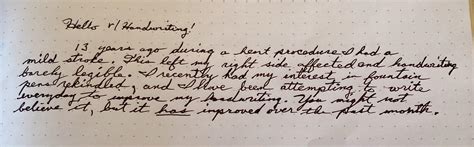 Hello r/Handwriting!
13 years ago during a heart procedure I had a
mild stroke. This left my right side affected and handwriting
barely legible. I recently had my interest in fountain
pens rekindled, and I have been attempting to write
everyday to improve my handwriting. You might not
believe it, but it has improved over the past month.